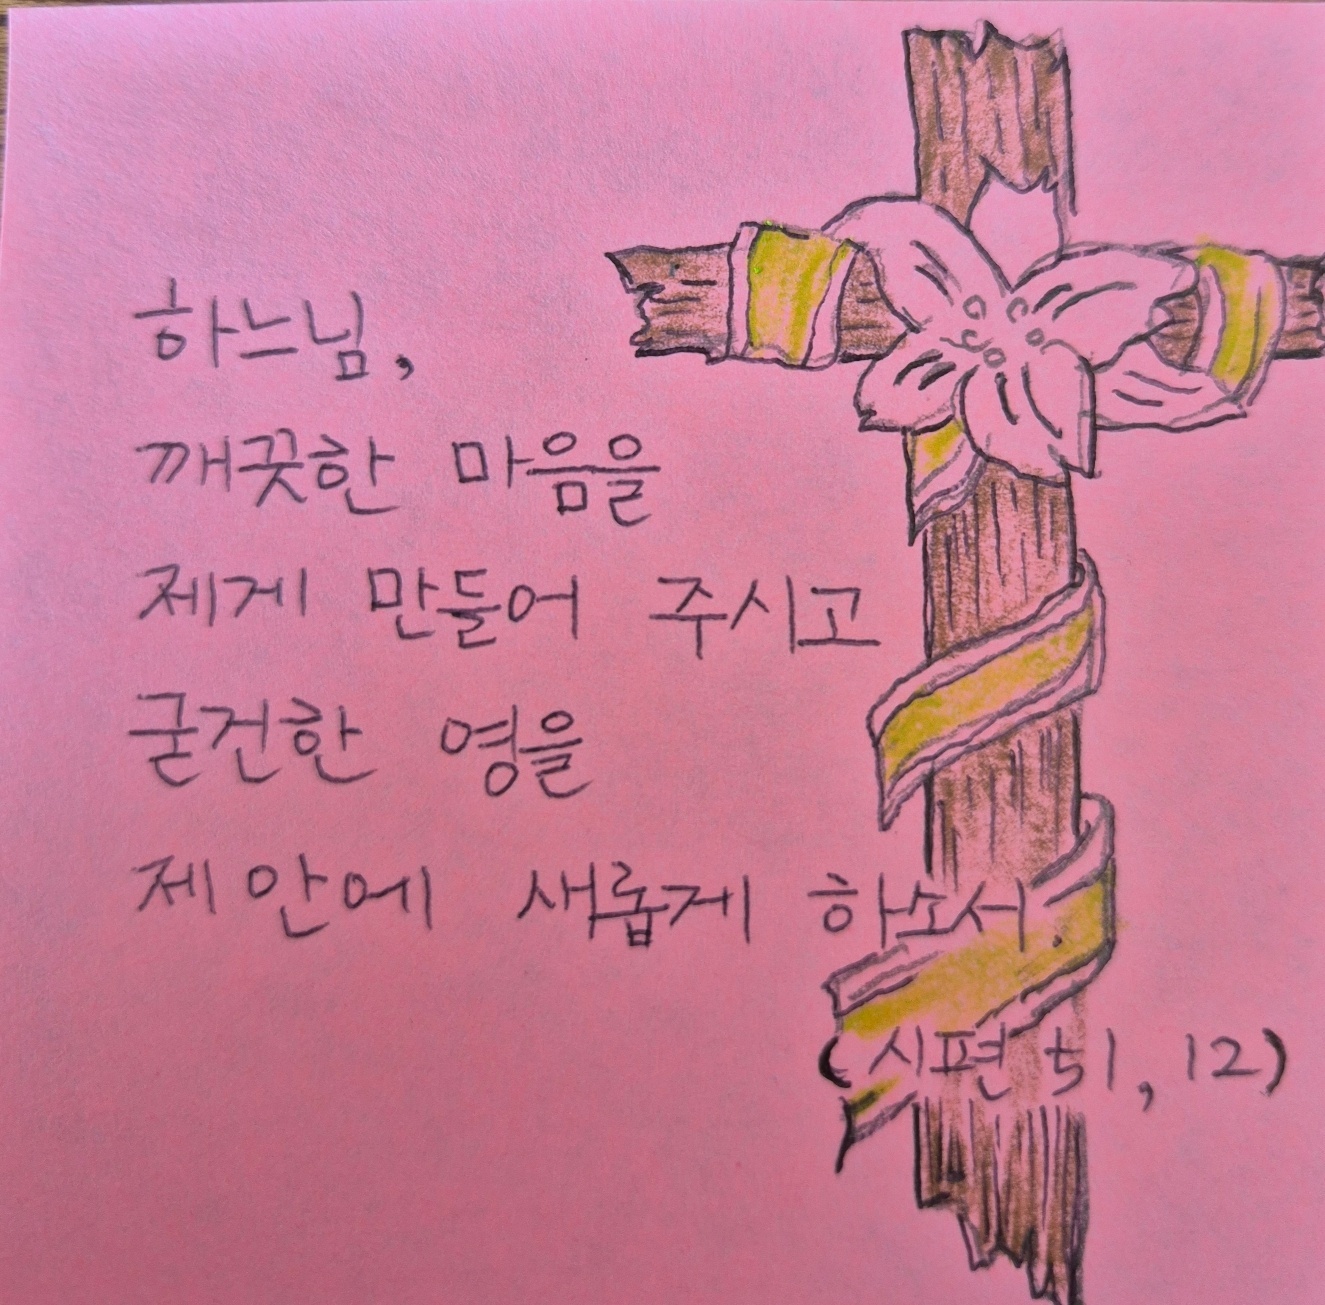 하느님,
깨끗한 마음을
제게 만들어 주시고
굳건한 영을
제 안에 새롭게 하소서.
(시편 51, 12)